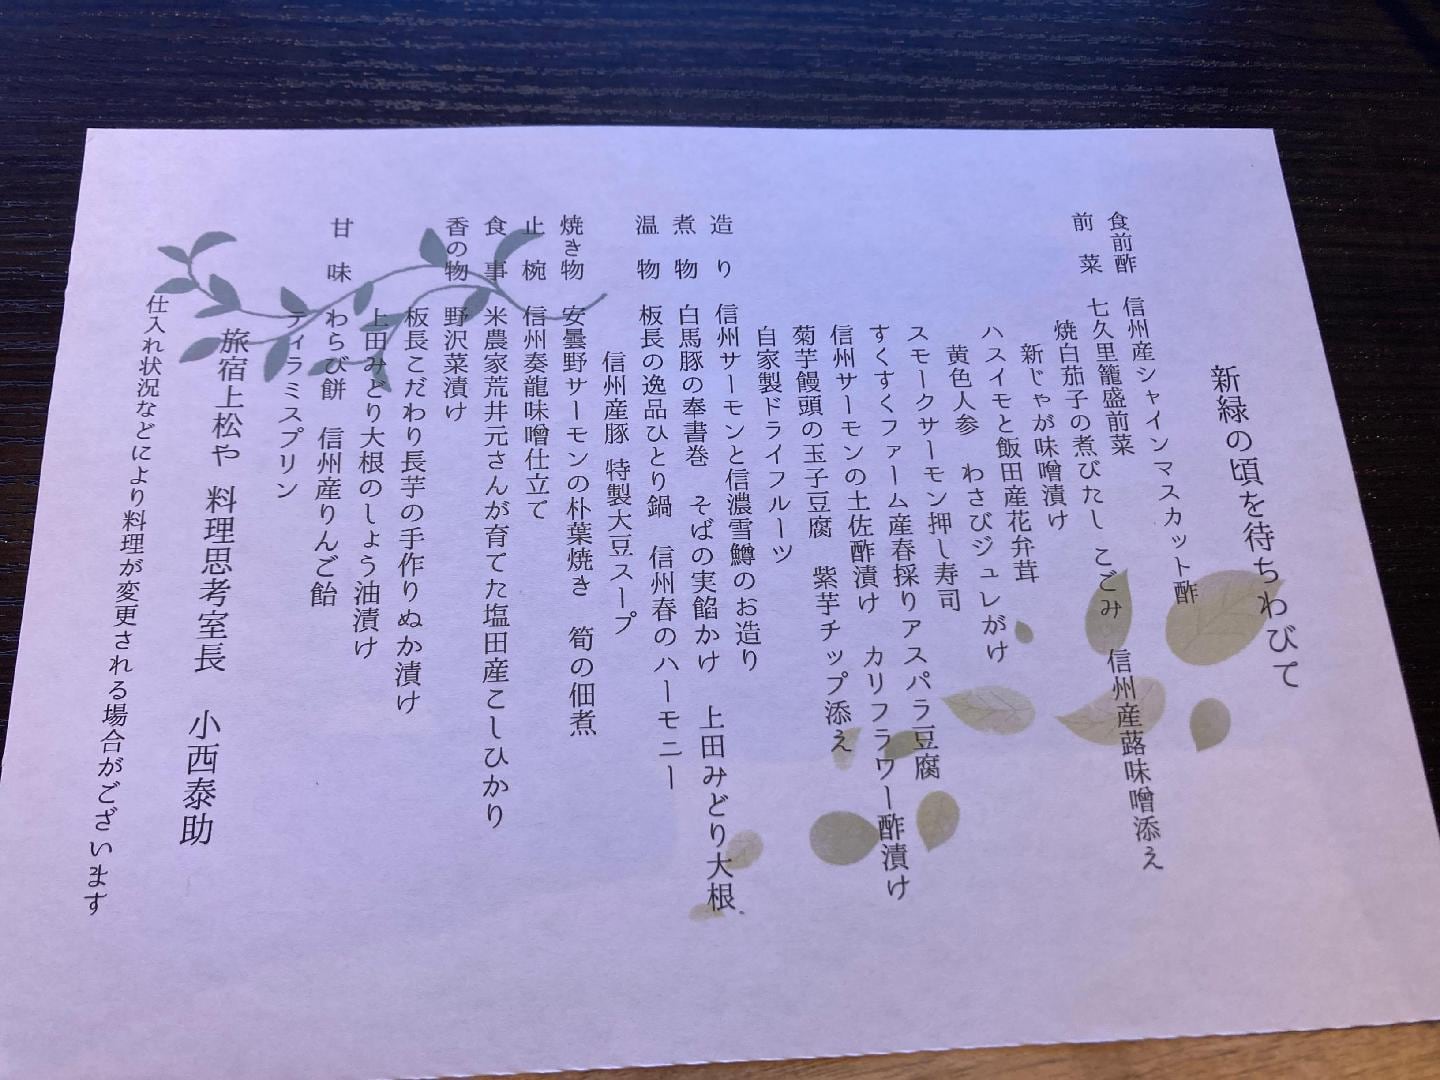 新緑の頃を待ちわびて
食前酢 信州産シャインマスカット酢
前菜 七久里籠盛前菜
焼白茄子の煮びたし こごみ 信州産蕗味噌添え
新じゃが味噌漬け
ハスイモと飯田産花弁茸
黄色人参 わさびジュレがけ
スモークサーモン押し寿司
すくすくファーム産春採りアスパラ豆腐
信州サーモンの土佐酢漬け カリフラワー酢漬け
菊芋饅頭の玉子豆腐 紫芋チップ添え
自家製ドライフルーツ
造り 信州サーモンと信濃雪鱒のお造り
煮物 白馬豚の奉書巻 そばの実餡かけ 上田みどり大根
温物 板長の逸品ひとり鍋 信州春のハーモニー
信州産豚 特製大豆スープ
焼き物 安曇野サーモンの朴葉焼き 筍の佃煮
止椀 信州奏龍味噌仕立て
食事 米農家荒井元さんが育てた塩田産こしひかり
香の物 野沢菜漬け
板長こだわり長芋の手作りぬか漬け
上田みどり大根のしょう油漬け
甘味 わらび餅 信州産りんご飴
ティラミスプリン
旅宿上松や 料理思考室長 小西泰助
仕入れ状況などにより料理が変更される場合がございます